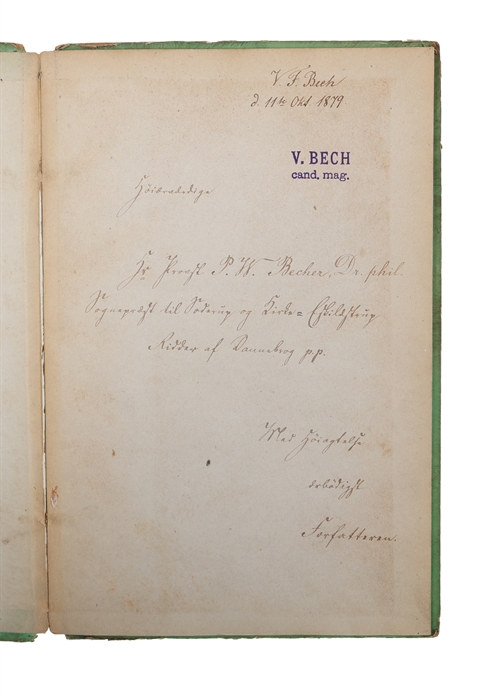 V. F. Bech
d. 11te Okt 1879
V. BECH
cand. mag.
Høiærværdige
Hr Provst P. W. Becher, Dr. phil.
Sognepræst til Søderup og Kirke=Eskildstrup
Ridder af Dannebrog p.p.
Med Høiagtelse
ærbødigst
Forfatteren.